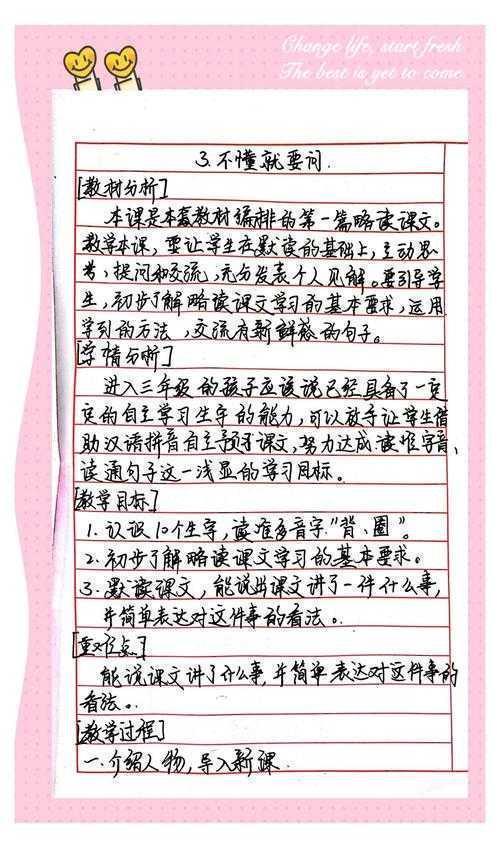 Change life, start fresh
The best is yet to come
3.不懂就要问.
[教材分析]
本课是本套教材编排的第一篇略读课文。
教学本课,要让学生在默读的基础上,主动思
考,提问和交流,充分发表个人见解。要引导学
生,初步了解略读课文学习的基本要求,运用
学到的方法,交流有新鲜感的句子。
[学情分析]
进入三年级的孩子应该说已经具备了一定
的自主学习生字的能力,可以放手让学生借
助汉语拼音自主预习课文,努力达成:读准字音、
读通句子这一浅显的学习目标。
[教学目标]
1.认识10个生字,读准多音字"背、圈"。
2.初步了解略读课文学习的基本要求。
3.默读课文,能说出课文讲了一件什么事,
并简单表达对这件事的看法。
[重难点]
能说课文讲了什么事,并简单表达对这件事的
看法。
[教学过程]
一.介绍人物,导入新课.